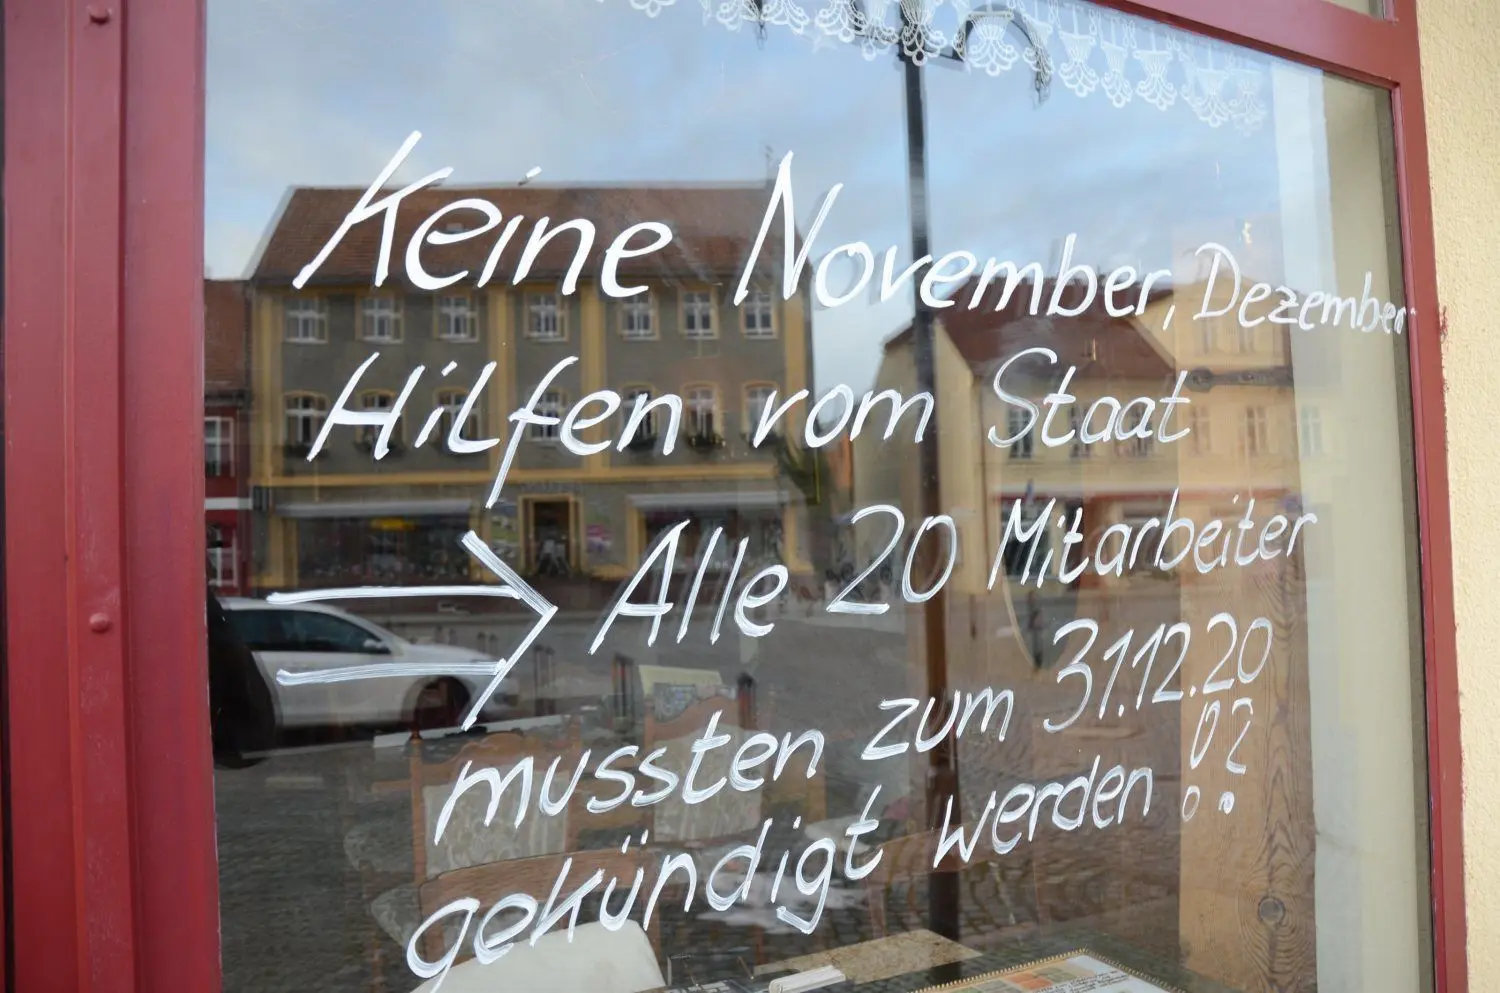 Keine November, Dezember
Hilfen vom Staat
Alle 20 Mitarbeiter
mussten zum 31.12.20
gekündigt werden !?